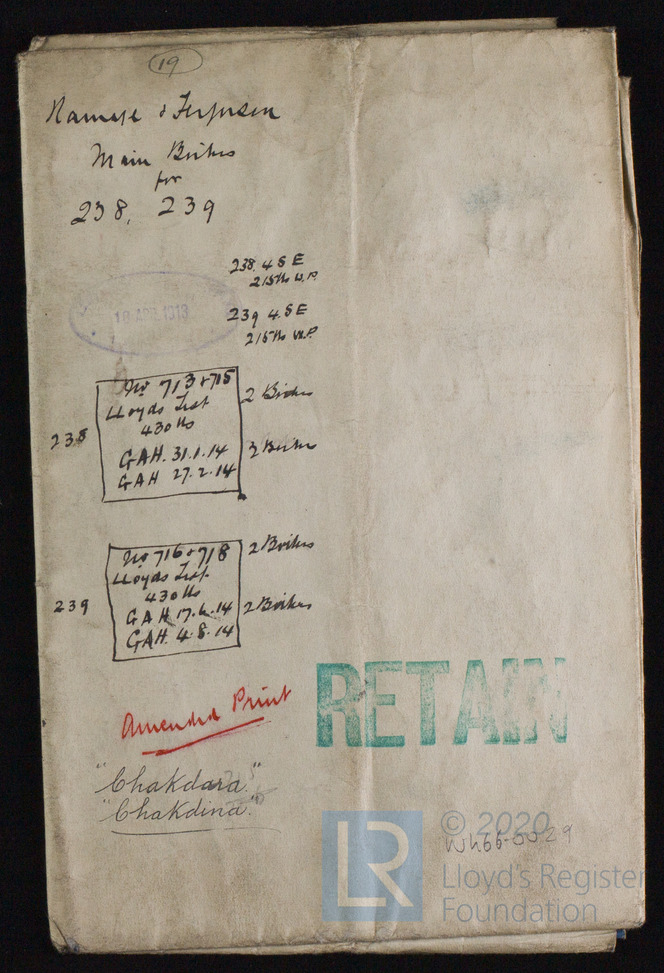 19
Ramage & Ferguson
Main Boilers
for
238, 239
238 4 S E
215 lbs W.P.
239 4 S E
215 lbs W.P.
18 APR 1913
238
No 713 & 715
Lloyds Test
430 lbs
GAH. 31.1.14
GAH 27.2.14
2 Boilers
2 Boilers
239
No 716 & 718
Lloyds Test
430 lbs
GAH 17.6.14
GAH. 4.8.14
2 Boilers
2 Boilers
Amended Print
RETAIN
"Chakdara."
"Chakdina."
© 2020
Wh66-0029
LR
Lloyd's Register
Foundation